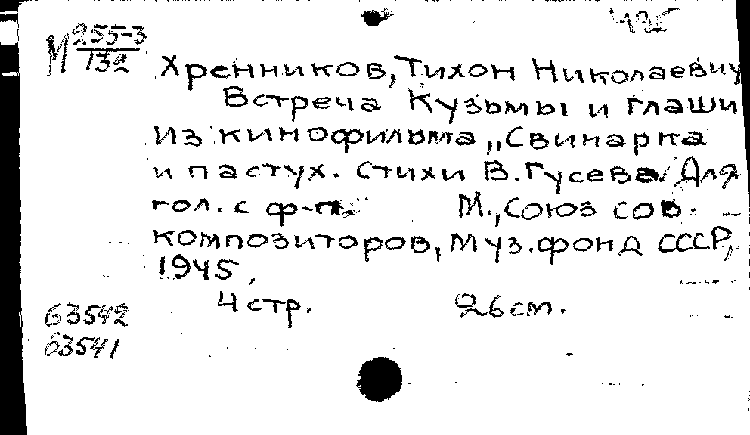 М 255-3
132
Хренников, Тихон Николаевич
Встреча Кузьмы и Глаши
из кинофильма „Свинарка
и пастух. Стихи В. Гусева. Для
гол. с ф-п. М., Союз сов.
композиторов, Муз. фонд СССР,
1945,
4 стр. 26 см.
63542
63541